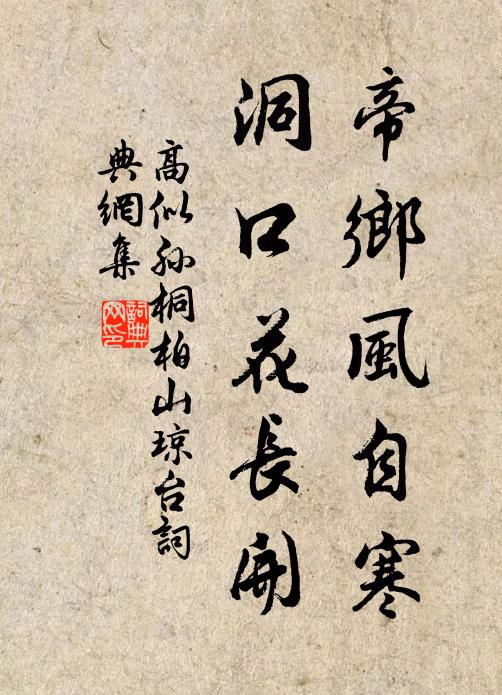 帝鄉風自寒
洞口花長開
高似孙桐柏山琼台詞
典網集
詞典网印